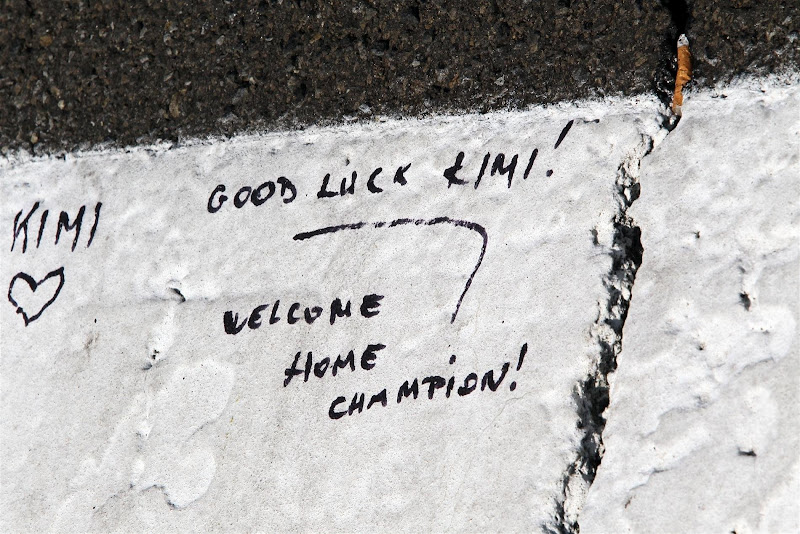 KIMI
GOOD LUCK KIMI!
WELCOME
HOME
CHAMPION!